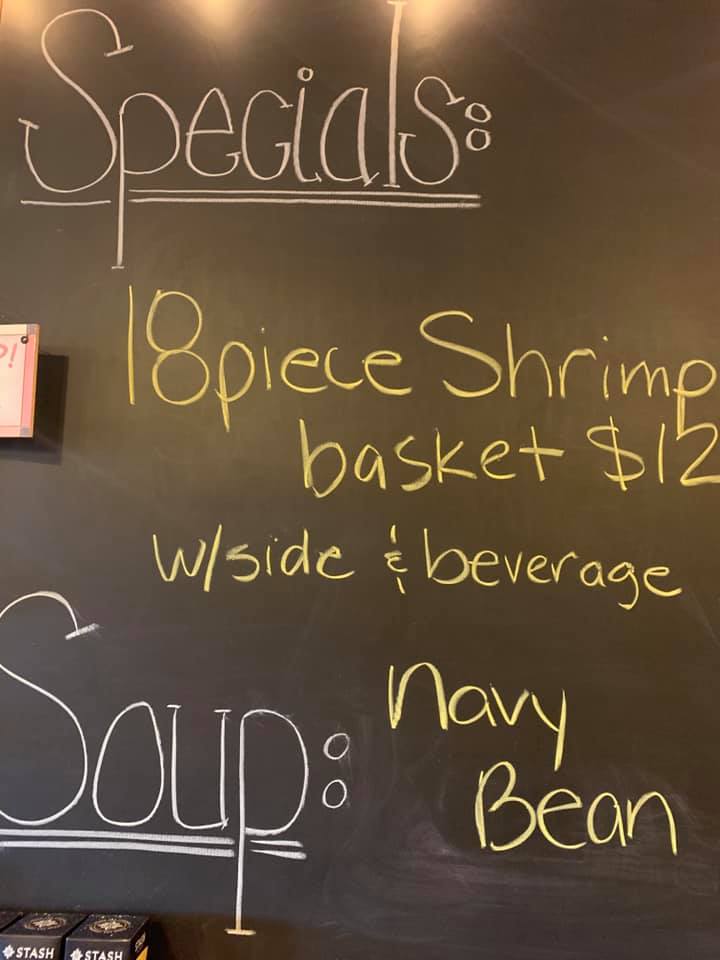 Specials:
P!
18 piece Shrimp
basket $12
w/side & beverage
Soup:
Navy
Bean
STASH
STASH